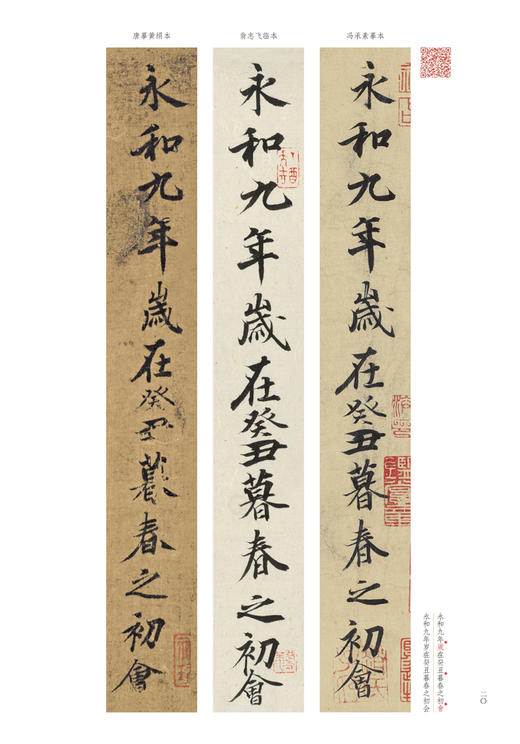 唐摹黄绢本
翁志飞临本
冯承素摹本
永和九年歲在癸丑暮春之初會
永和九年歲在癸丑暮春之初會
永和九年歲在癸丑暮春之初會
永和九年歲在癸丑暮春之初會
永和九年岁在癸丑暮春之初会
二〇